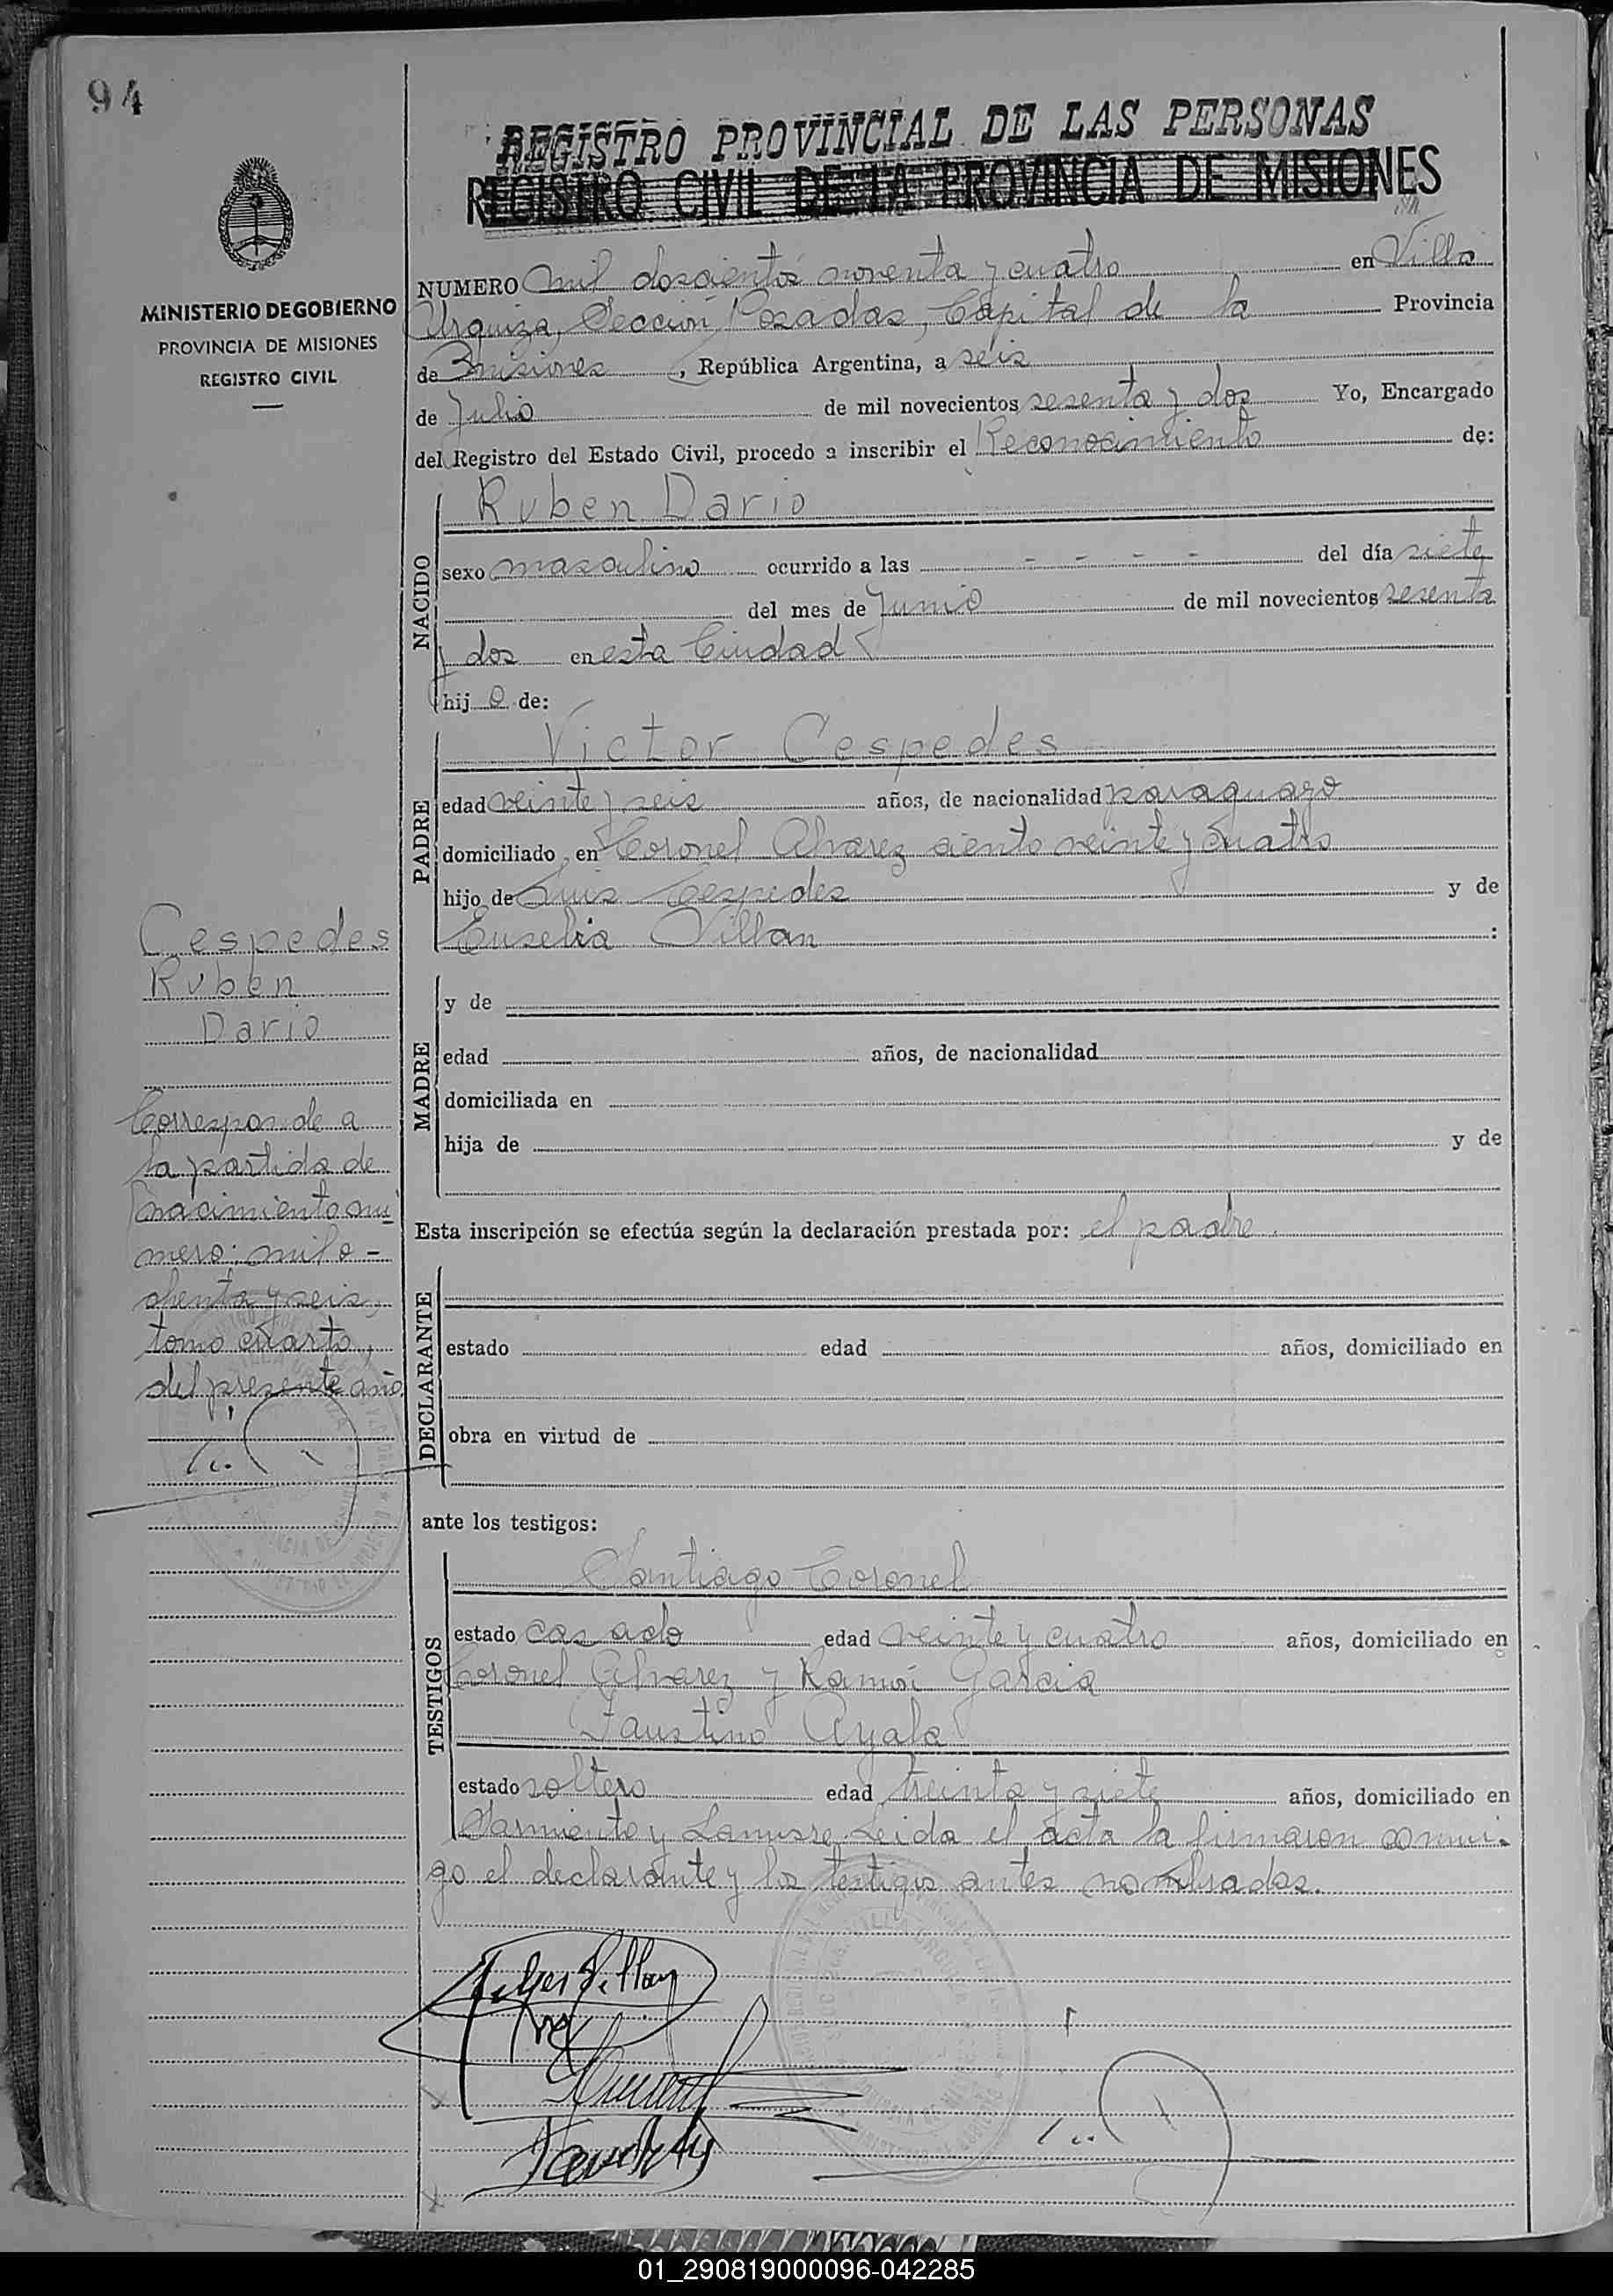 94
REGISTRO PROVINCIAL DE LAS PERSONAS
REGISTRO CIVIL DE LA PROVINCIA DE MISIONES
MINISTERIO DE GOBIERNO
PROVINCIA DE MISIONES
REGISTRO CIVIL
NUMERO mil doscientos noventa y cuatro en Villa
Urquiza, Sección Posadas, Capital de la Provincia
de Misiones, República Argentina, a seis
de Julio de mil novecientos sesenta y dos Yo, Encargado
del Registro del Estado Civil, procedo a inscribir el Reconocimiento de:
NACIDO
Ruben Dario
sexo masculino ocurrido a las - - - - del día siete
del mes de Junio de mil novecientos sesenta
y dos en esta Ciudad
hij o de:
PADRE
Victor Cespedes
edad veinte y seis años, de nacionalidad paraguayo
domiciliado en Coronel Alvarez ciento veinte y cuatro
hijo de Luis Cespedes y de
Eusebia Villan :
MADRE
y de
edad años, de nacionalidad
domiciliada en
hija de y de
Esta inscripción se efectúa según la declaración prestada por: el padre.
DECLARANTE
estado edad años, domiciliado en
obra en virtud de
ante los testigos:
TESTIGOS
Santiago Coronel
estado casado edad veinte y cuatro años, domiciliado en
Coronel Alvarez y Ramón Garcia
Faustino Ayala
estado soltero edad treinta y siete años, domiciliado en
Sarmiento y Lanusse. Leida el acta la firmaron conmi-
go el declarante y los testigos antes nombrados.
Cespedes
Ruben
Dario
Corresponde a
la partida de
nacimiento nu
mero: mil o-
chenta y seis,
tomo cuarto,
del presente año
01_290819000096-042285